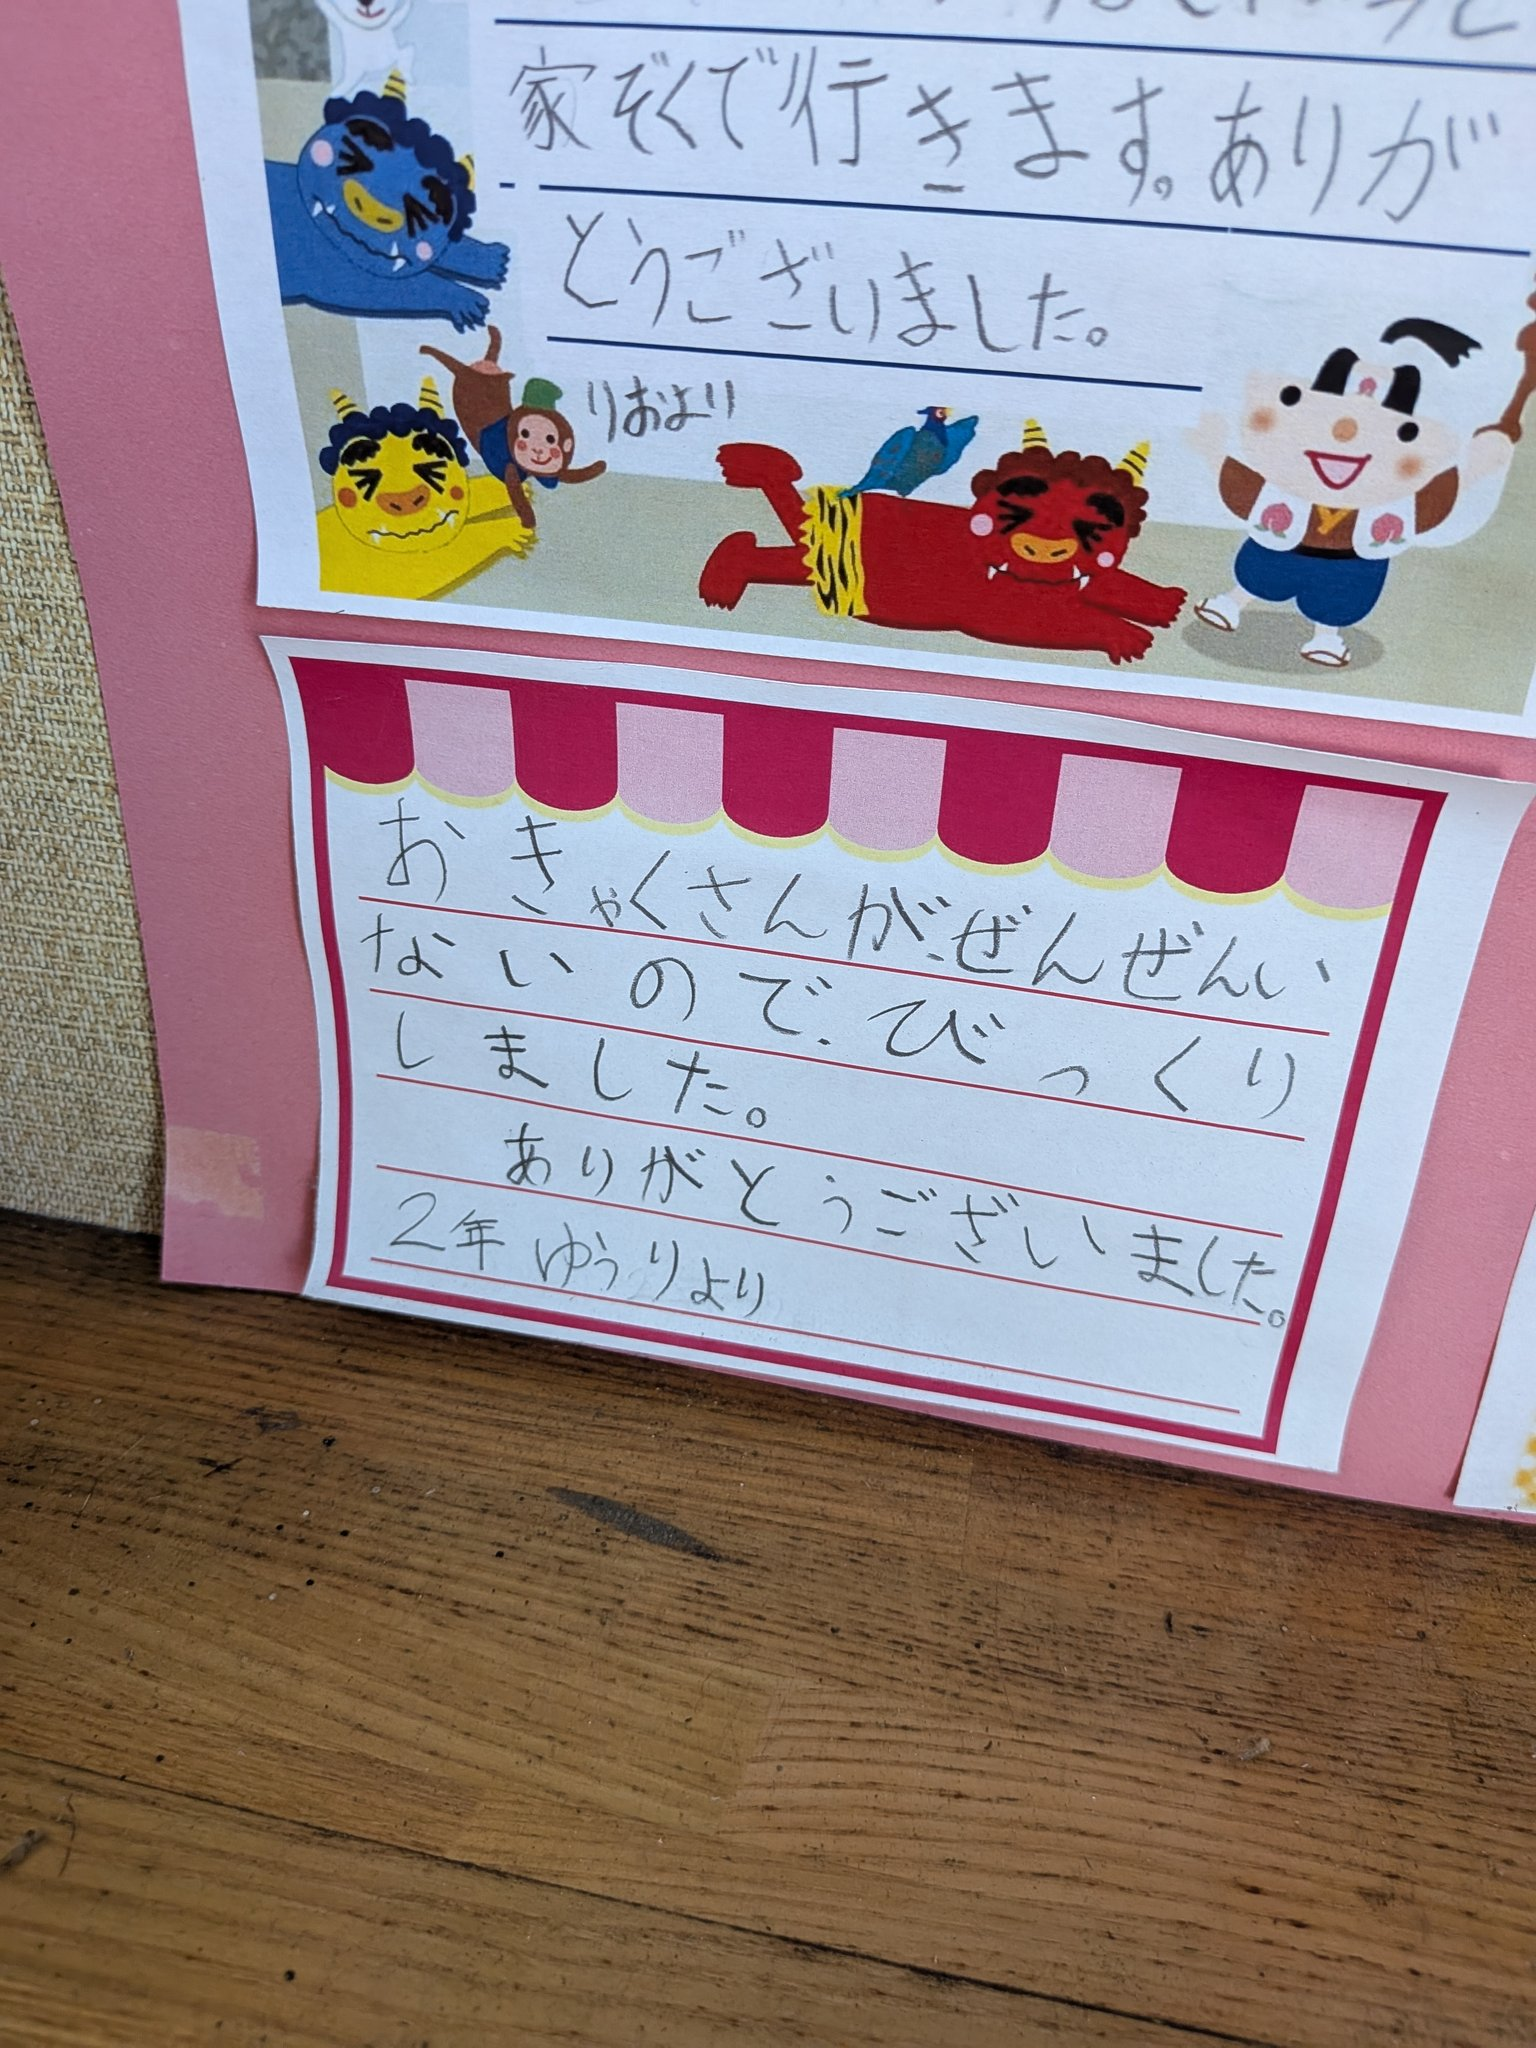 家ぞくで行きます。ありが
とうございました。
りおより
おきゃくさんが、ぜんぜんい
ないので、びっくり
しました。
ありがとうございました。
2年 ゆうりより